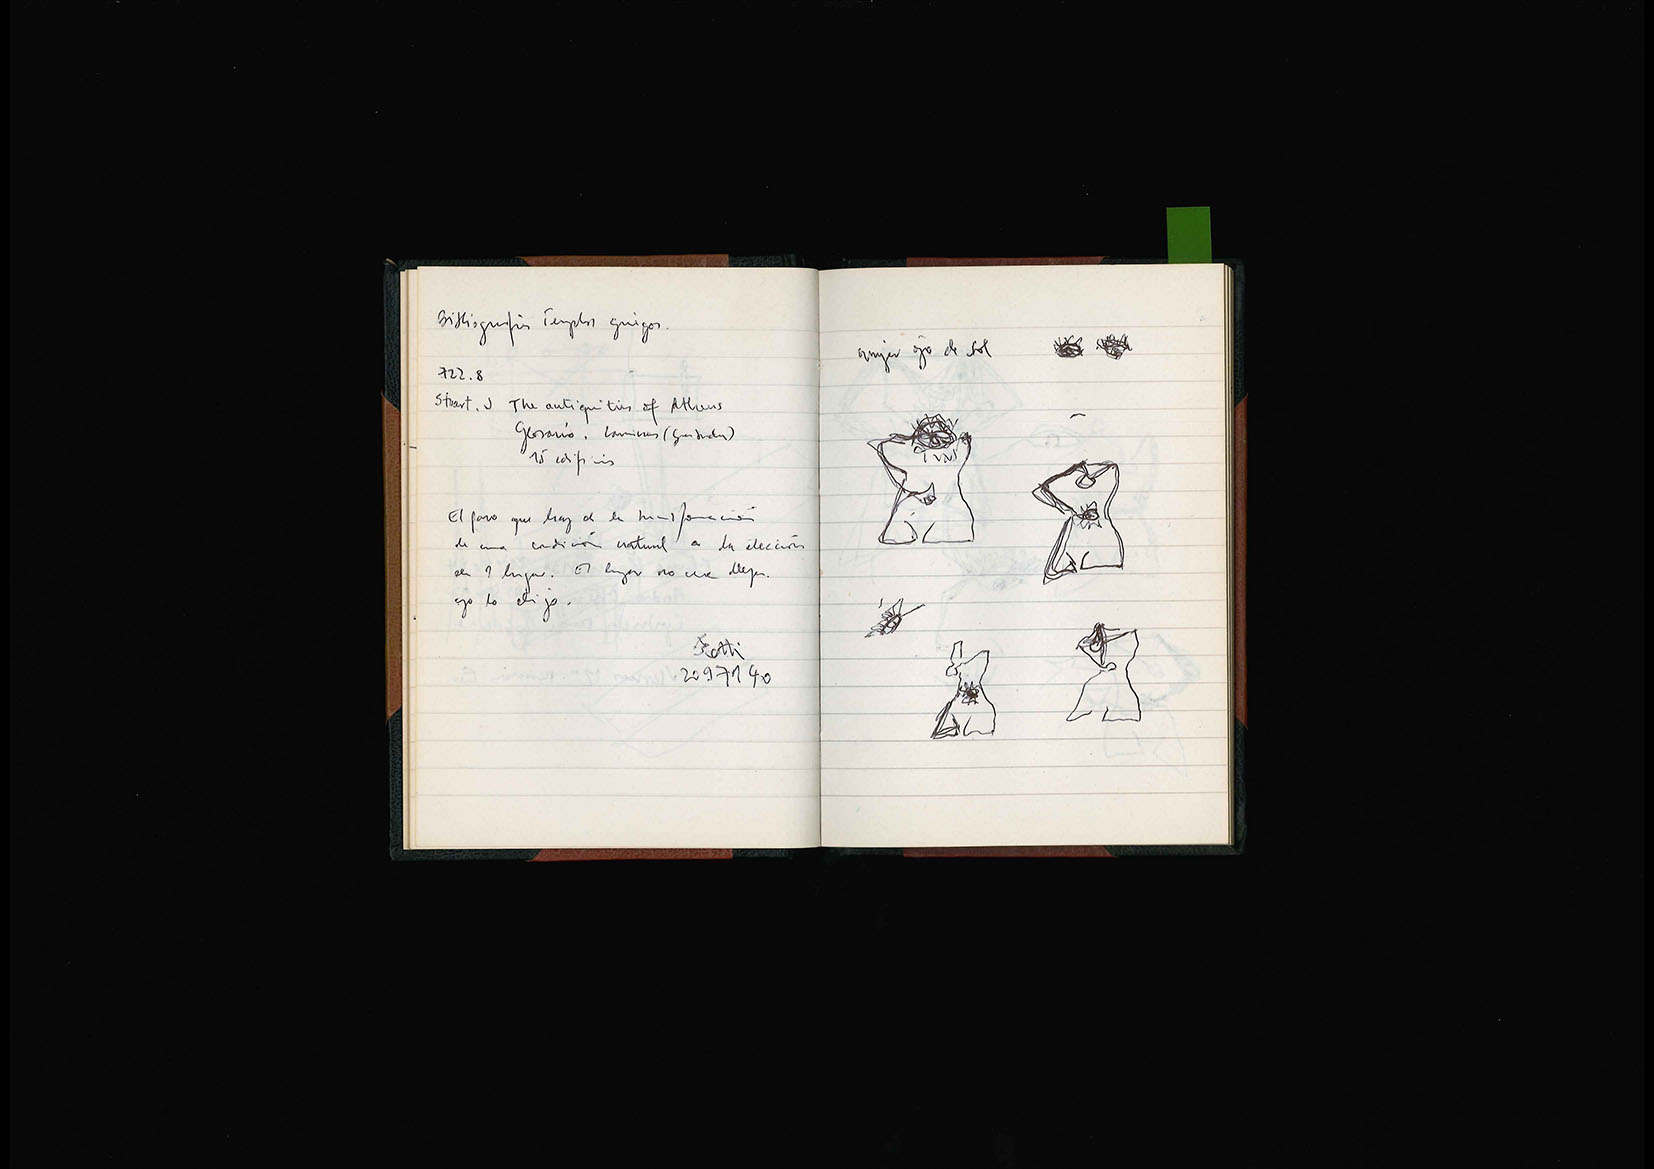 Bibliografía Templos griegos.
722.8
Stuart. J The antiquities of Athens
Glosario. Láminas (grabados)
15 edificios
El paso que hay de la transformación
de una condición natural a la elección
de 1 lugar. El lugar no me llega.
yo lo elijo.
2097140
mujer ojo de sol